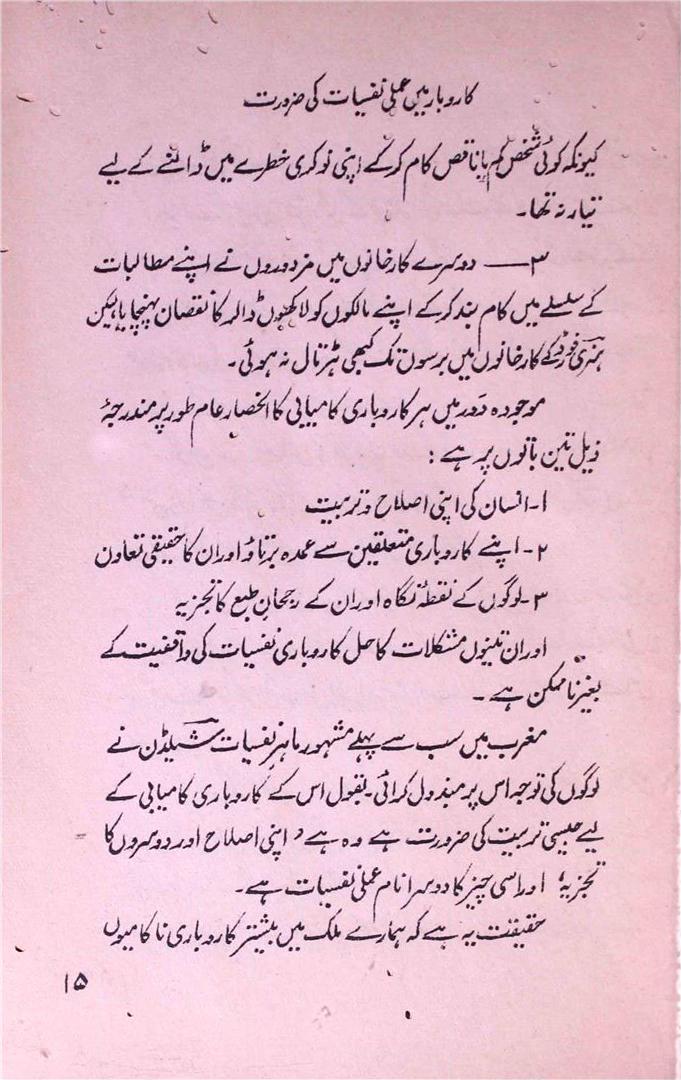 کاروبار میں عملی نفسیات کی ضرورت
کیونکہ کوئی شخص کم یا ناقص کام کر کے اپنی نوکری خطرے میں ڈالنے کے لیے
تیار نہ تھا۔
۳ــــ دوسرے کارخانوں میں مزدوروں نے اپنے مطالبات
کے سلسلے میں کام بند کر کے اپنے مالکوں کو لاکھوں ڈالر کا نقصان پہنچایا، لیکن
ہنری فورڈ کے کارخانوں میں برسوں تک کبھی ہڑتال نہ ہوئی۔
موجودہ دَور میں ہر کاروباری کامیابی کا انحصار عام طور پر مندرجۂ
ذیل تین باتوں پر ہے :
۱۔ انسان کی اپنی اصلاح و تربیت
۲۔ اپنے کاروباری متعلقین سے عمدہ برتاؤ اور ان کا حقیقی تعاون
۳۔ لوگوں کے نقطۂ نگاہ اور ان کے رجحانِ طبع کا تجزیہ
اور ان تینوں مشکلات کا حل کاروباری نفسیات کی واقفیت کے
بغیر ناممکن ہے ۔
مغرب میں سب سے پہلے مشہور ماہرِ نفسیات شیلڈن نے
لوگوں کی توجہ اس پر مبذول کرائی۔ بقول اس کے کاروباری کامیابی کے
لیے جیسی تربیت کی ضرورت ہے وہ ہے ’ اپنی اصلاح اور دوسروں کا
تجزیہ‘ اور اسی چیز کا دوسرا نام عملی نفسیات ہے۔
حقیقت یہ ہے کہ ہمارے ملک میں بیشتر کاروباری ناکامیوں
۱۵